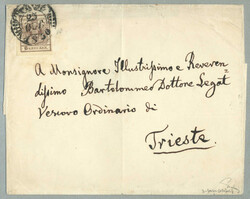 A Monsignore Illustrissimo e Reveren-
dissimo Bartolommeo Dottore Legat
Vescovo Ordinario di
Trieste